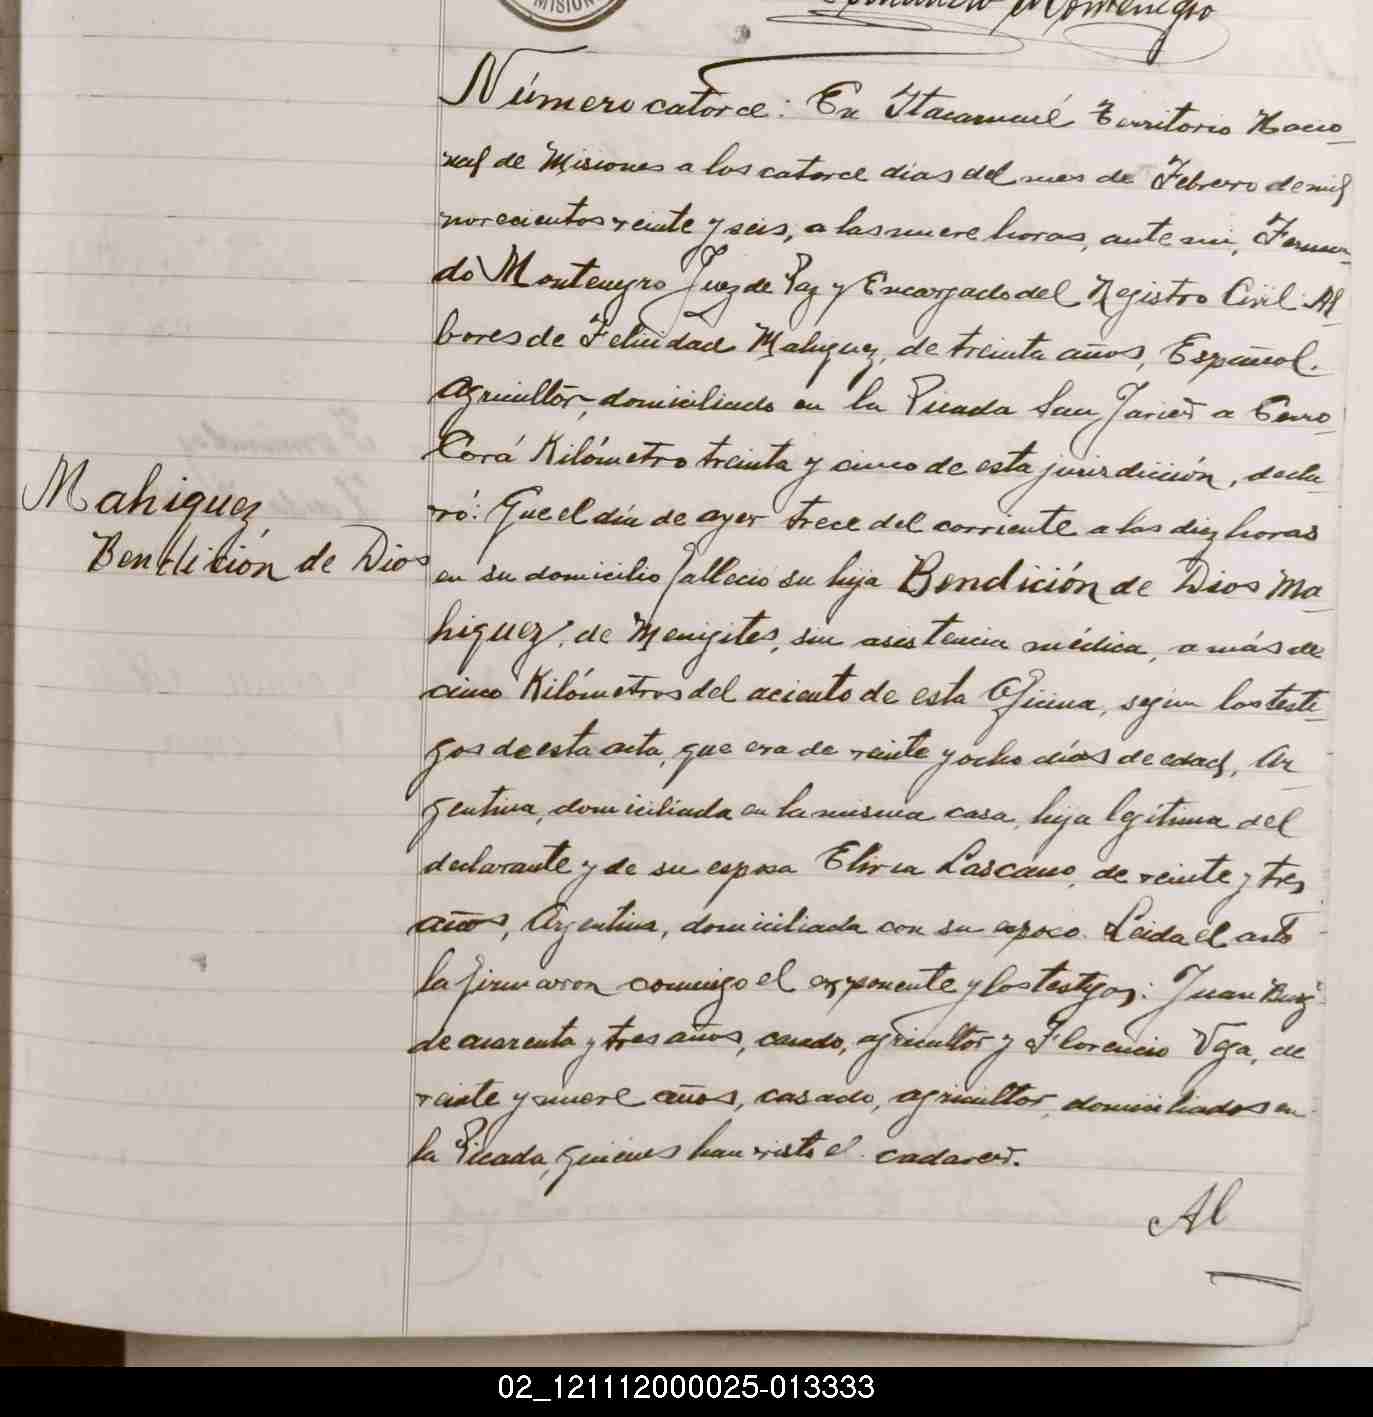 MISION
Fernando Montenegro
Número catorce: En Itacaruaré Territorio Nacio-
nal de Misiones a los catorce días del mes de Febrero de mil
novecientos veinte y seis, a las nueve horas, ante mi, Fernan-
do Montenegro Juez de Paz y Encargado del Registro Civil. Al-
bores de Felicidad Mahiquez, de treinta años, Español.
Agricultor, domiciliado en la Picada San Javier a Cerro
Corá Kilómetro treinta y cinco de esta jurisdicción, decla-
ró: Que el día de ayer trece del corriente a las diez horas
Mahiquez
Bendición de Dios
en su domicilio falleció su hija Bendición de Dios Ma-
hiquez, de Menigites, sin asistencia médica, a más de
cinco Kilómetros del aciento de esta Oficina, segun los testi-
gos de esta acta, que era de veinte y ocho días de edad, Ar
gentina, domiciliada en la misma casa, hija legítima del
declarante y de su esposa Elvira Lascano, de veinte y tres
años, Argentina, domiciliada con su esposo. Leida el acta
la firmaron conmigo el exponente y los testigos: Juan
de cuarenta y tres años, casado, agricultor y Florencio Vega, de
veinte y nueve años, casado, agricultor, domiciliados en
la Picada, quienes han visto el cadaver.
Al
02_121112000025-013333